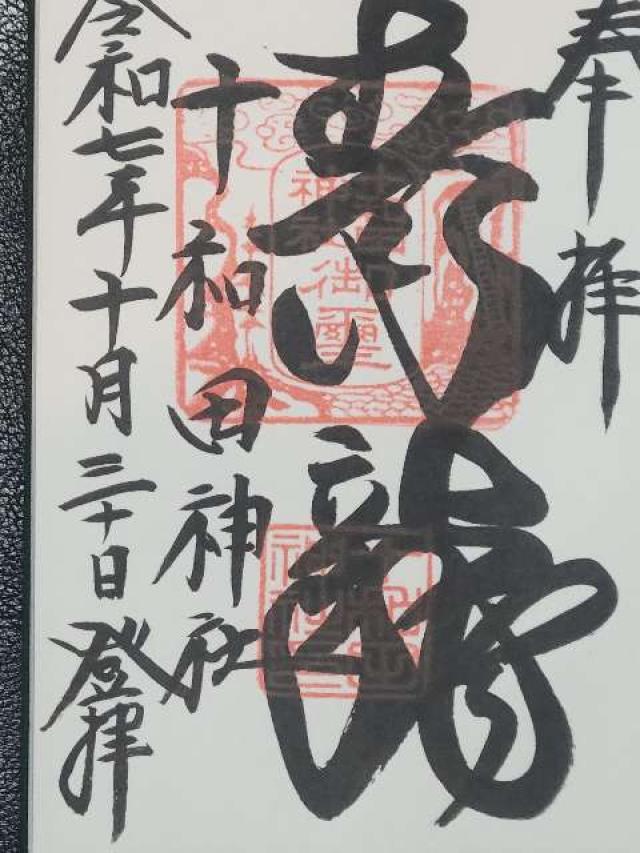 奉拝
龍
十和田神社
令和七年十月三十日登拝